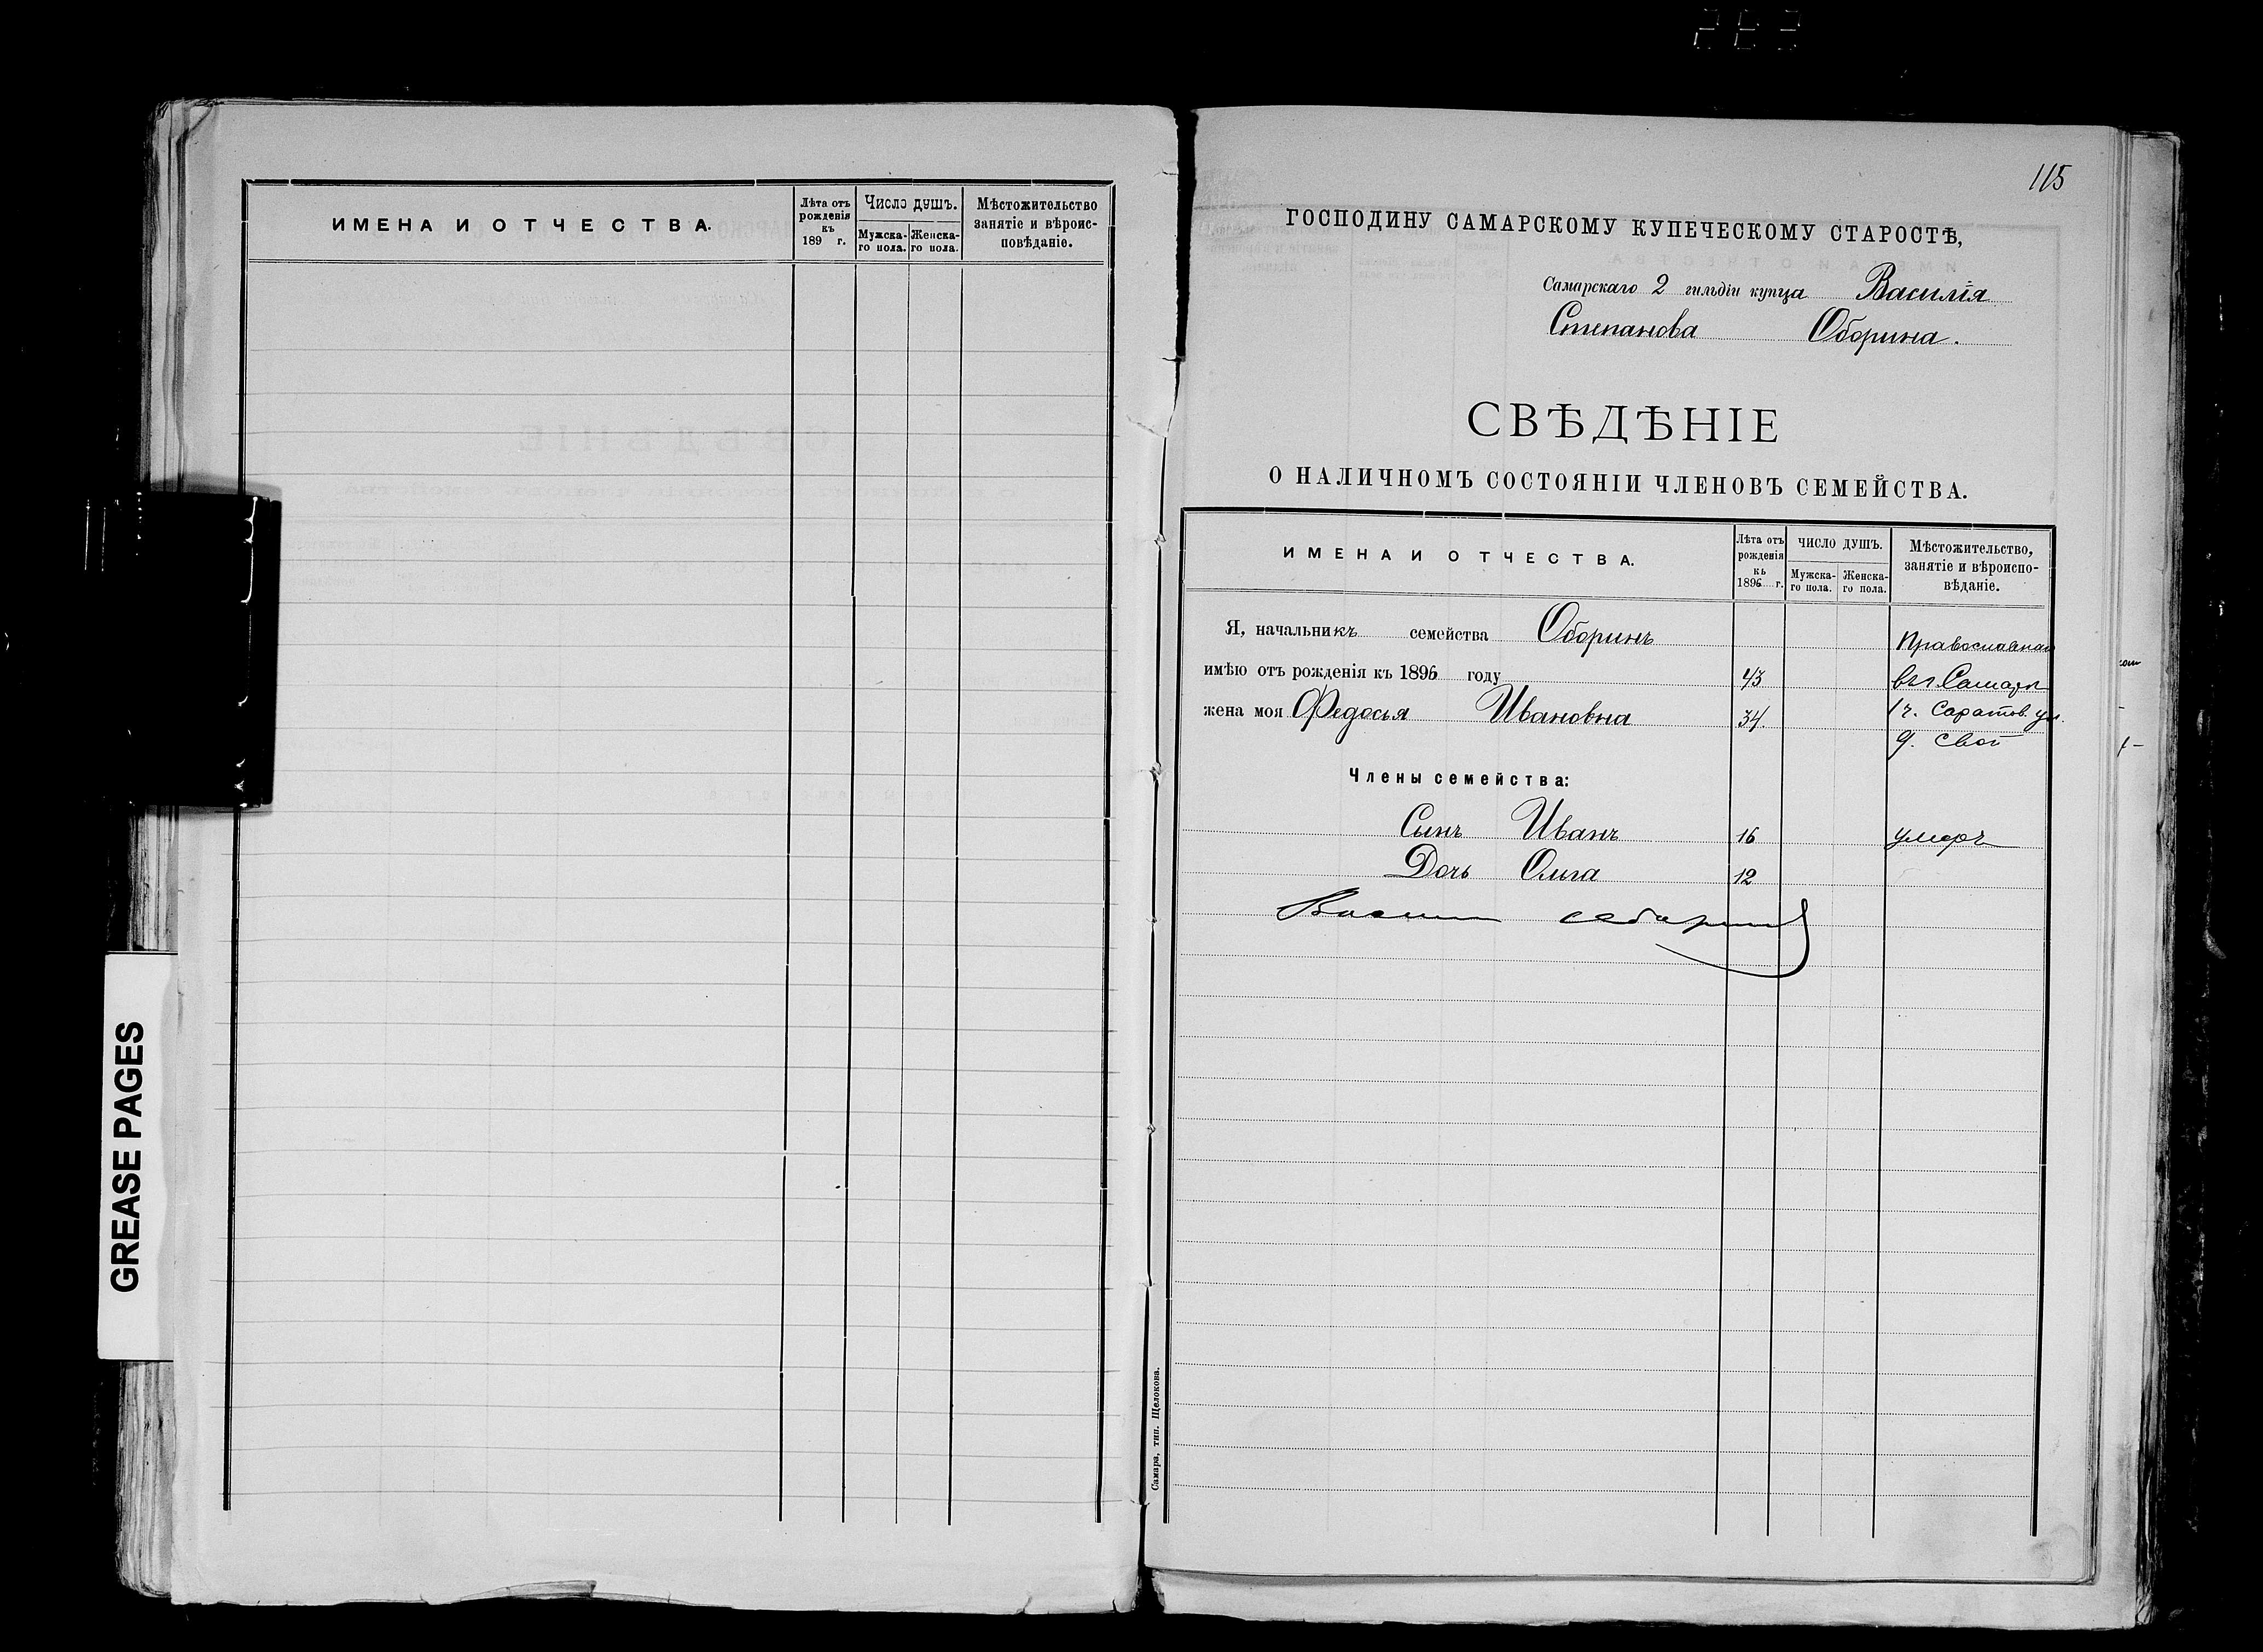 ИМЕНА И ОТЧЕСТВА.
Лѣта отъ рожденія къ 189 г.
Число душъ.
Мужска-го пола.
Женска-го пола.
Мѣстожительство
занятіе и вѣроис-
повѣданіе.
GREASE PAGES
115
ГОСПОДИНУ САМАРСКОМУ КУПЕЧЕСКОМУ СТАРОСТѢ,
Самарскаго 2 гильдіи купца Василія
Степанова Оборина.
СВѢДѢНІЕ
О НАЛИЧНОМЪ СОСТОЯНІИ ЧЛЕНОВЪ СЕМЕЙСТВА.
ИМЕНА И ОТЧЕСТВА.
Лѣта отъ рожденія къ 1896 г.
ЧИСЛО ДУШЪ.
Мужска-го пола.
Женска-го пола.
Мѣстожительство,
занятіе и вѣроиспо-
вѣданіе.
Я, начальникъ семейства Оборинъ Православная
имѣю отъ рожденія къ 1896 году 43 въ г. Самарѣ
жена моя Федосья Ивановна 34 1 ч. Саратов. ул.
д. свой
Члены семейства:
Сынъ Иванъ 16 умеръ
Дочь Ольга 12
Самара, тип. Щелокова.